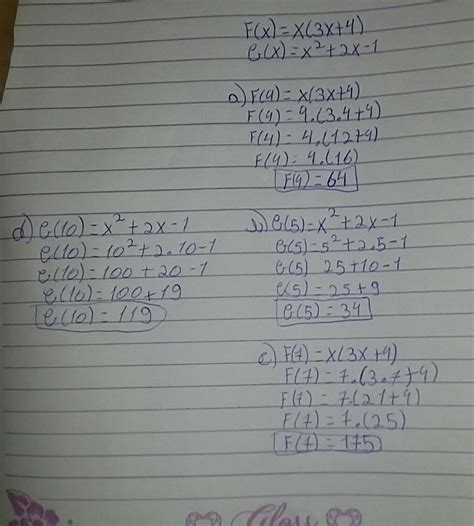 F(x)=x(3x+4)
e(x)=x²+2x-1
a) F(4)=x(3x+4)
F(4)=4.(3.4+4)
F(4)=4.(12+4)
F(4)=4.(16)
F(4)=64
b) e(5)=x²+2x-1
e(5)=5²+2.5-1
e(5) 25+10-1
e(5)=25+9
e(5)=34
c) F(7)=x(3x+4)
F(7)=7.(3.7+4)
F(7)=7.(21+4)
F(7)=7.(25)
F(7)=175
d) e(10)=x²+2x-1
e(10)=10²+2.10-1
e(10)=100+20-1
e(10)=100+19
e(10)=119
Class